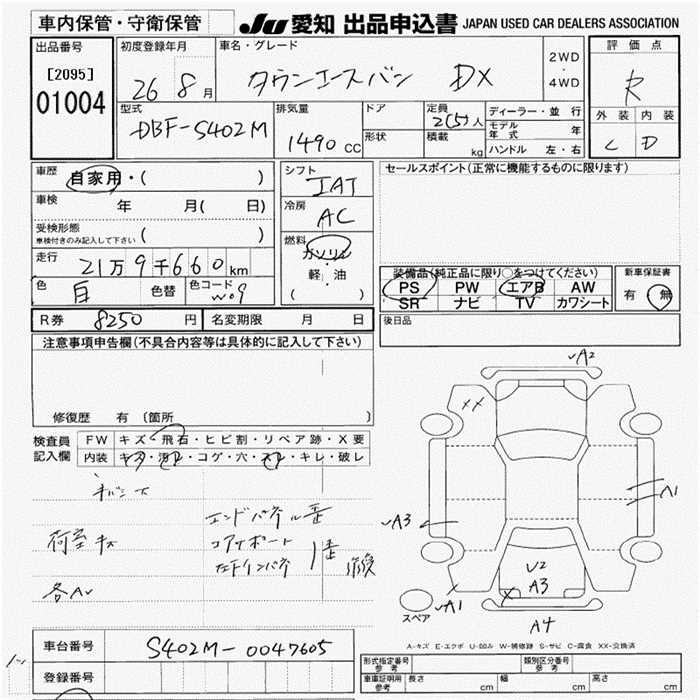 車内保管・守衛保管
JU 愛知 出品申込書 JAPAN USED CAR DEALERS ASSOCIATION
出品番号
[2095]
01004
初度登録年月
26 8月
車名・グレード
タウンエースバン DX
2WD
・
4WD
評価点
R
外装 内装
C D
型式
DBF-S402M
排気量
1490 cc
ドア
形状
定員
2(5)人
積載
kg
ディーラー・並行
モデル年式 年
ハンドル 左・右
車歴
自家用・( )
車検
年 月( 日)
受検形態
車検付きのみ記入して下さい ( )
走行
21万9千660km
色
白
色替
色コード
W09
シフト
IAT
冷房
AC
燃料
ガソリン
・
軽・油
( )
セールスポイント(正常に機能するものに限ります)
装備品(純正品に限り○をつけてください)
PS PW エアB AW
SR ナビ TV カワシート
新車保証書
有 無
後日品
R券 8250 円
名変期限 月 日
注意事項申告欄(不具合内容等は具体的に記入して下さい)
修復歴 有 〔箇所
検査員記入欄
FW キズ・飛石・ヒビ割・リペア跡・X要
内装 キズ・汚レ・コゲ・穴・スレ・キレ・破レ
荷室キズ
各AU
エンドパネル歪
コアサポート
左ドインパネ
歪
修復
√A2
XX
A1
√A3
U2
A3
X
√A1
A4
スペア
A-キズ E-エクボ U-凹み W-補修跡 S-サビ C-腐食 XX-交換済
車台番号
S402M-0047605
登録番号
形式指定番号 参考
類別区分番号 参考
車庫証明用 参考
長さ cm
幅 cm
高さ cm